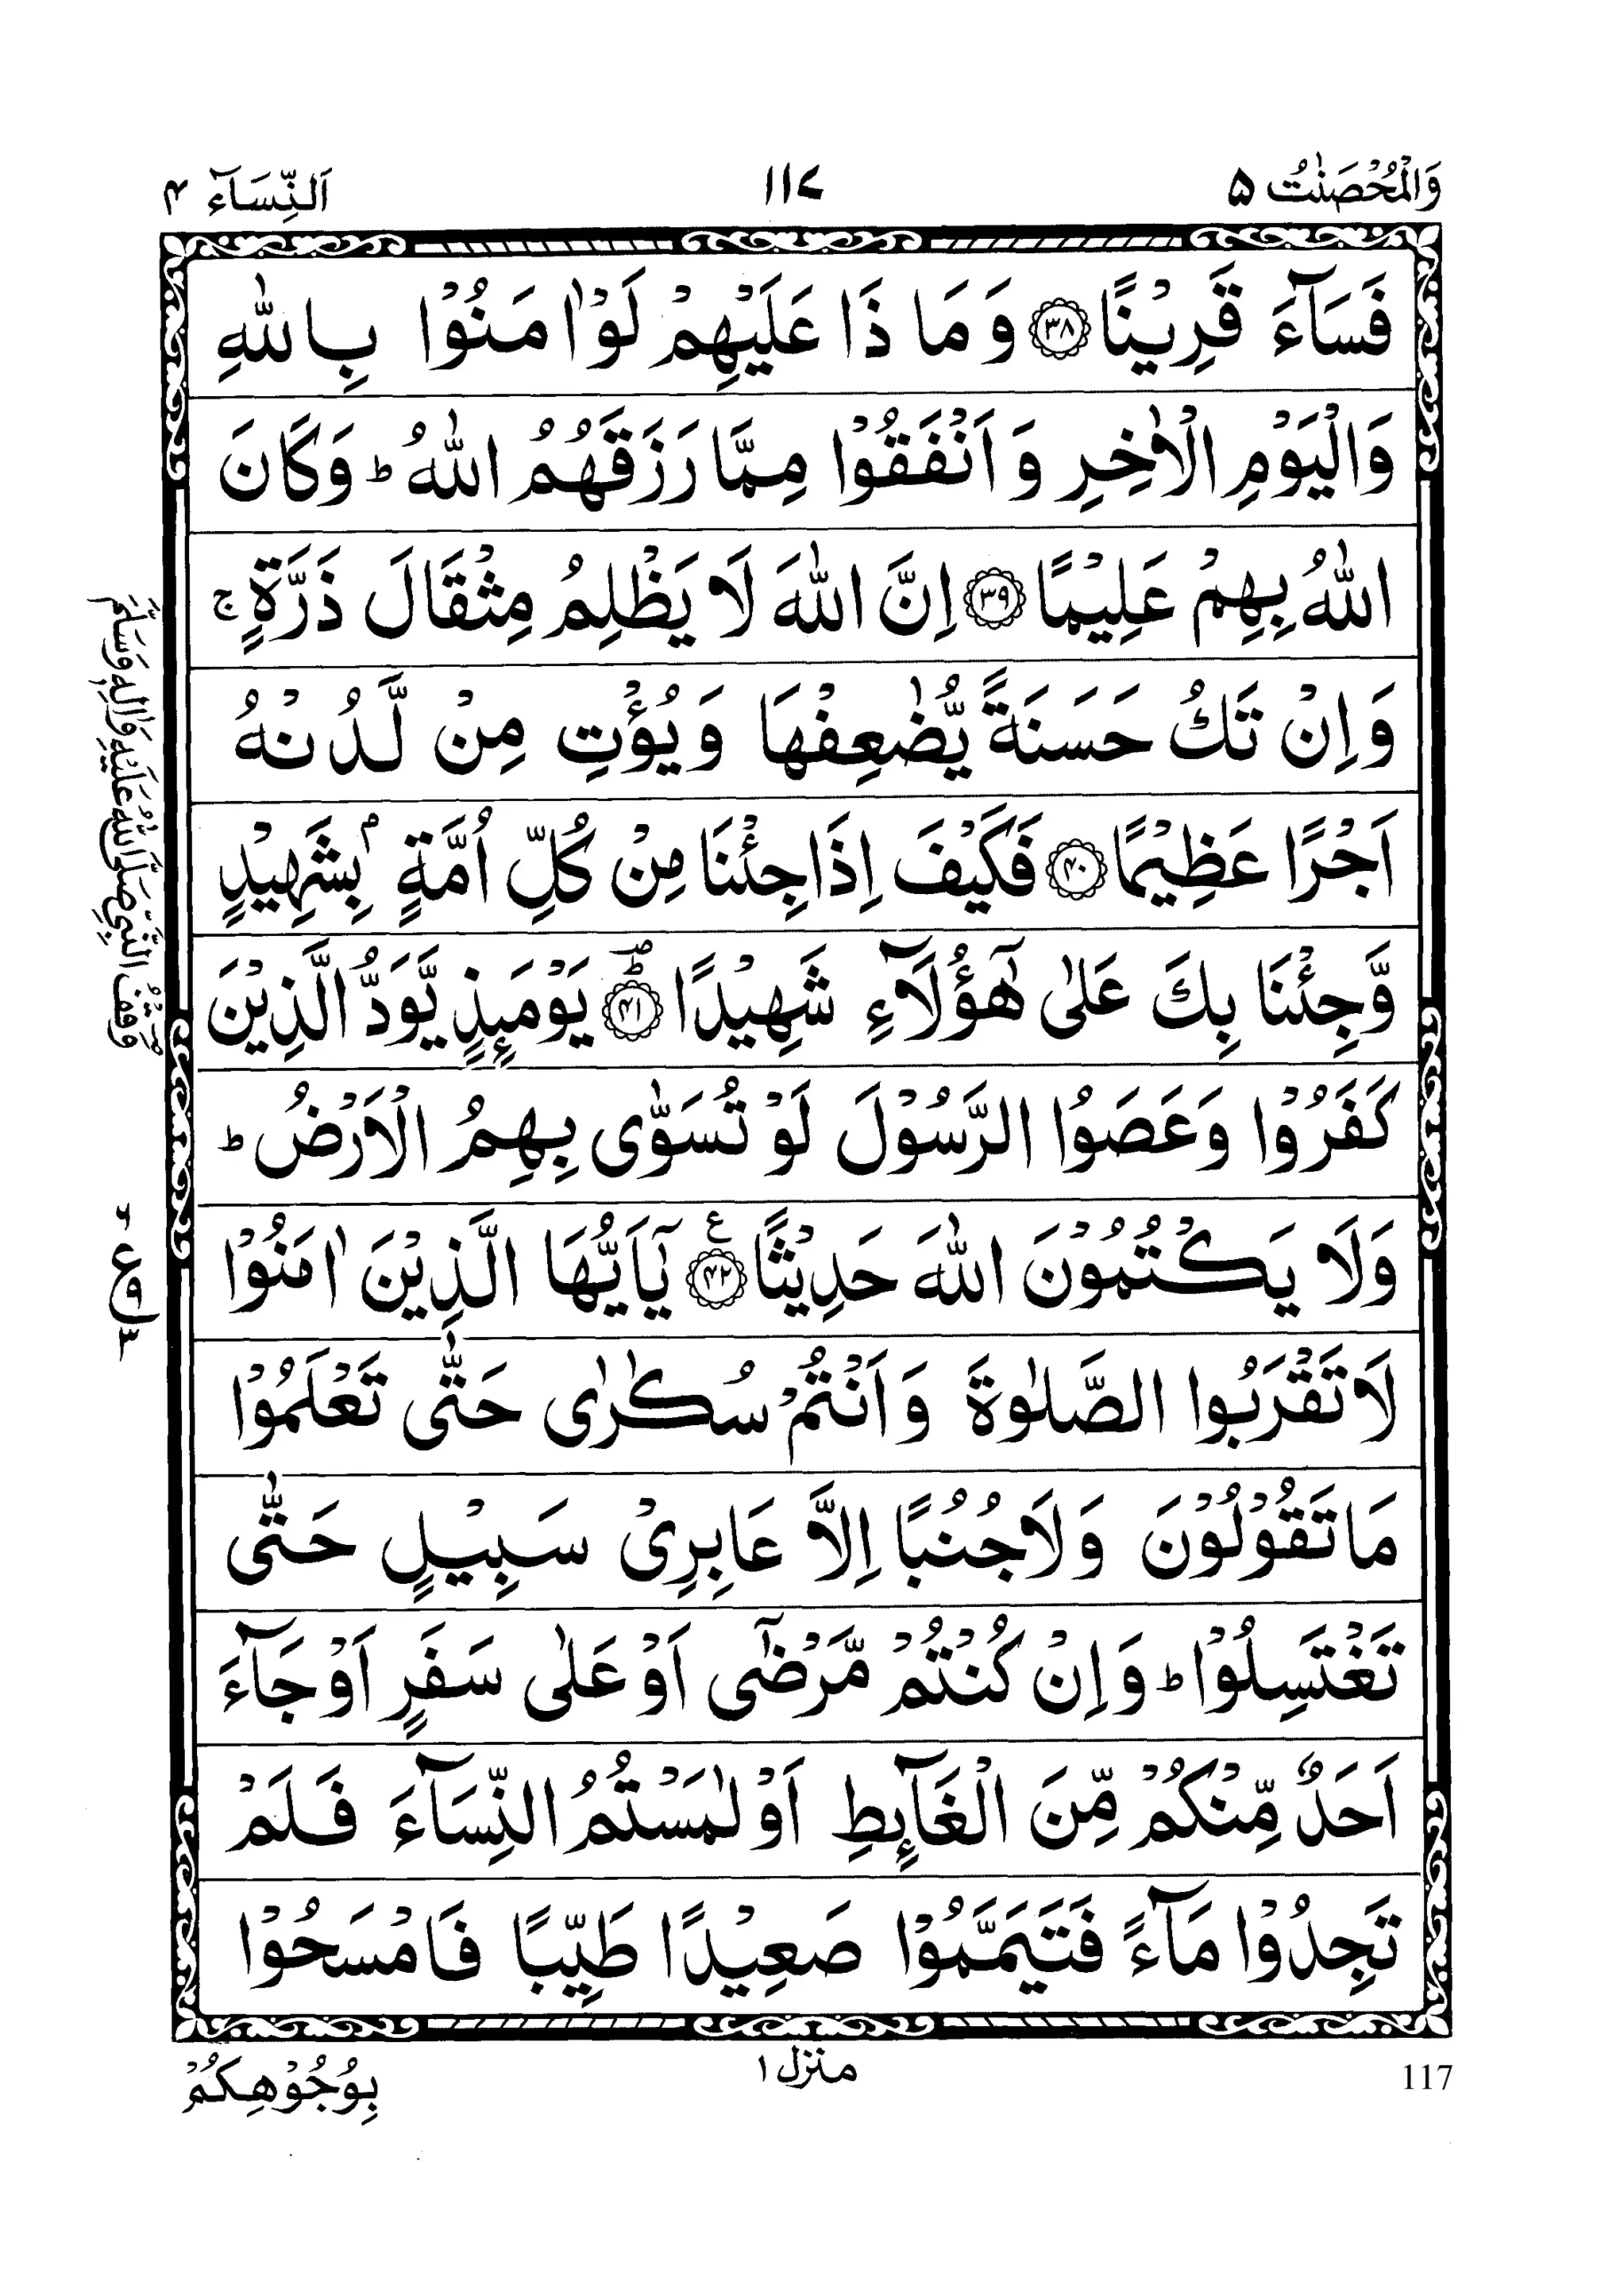 وَالْمُحْصَنٰتُ ۵
۱۱۷
اَلنِّسَآء ۴
فَسَآءَ قَرِيْنًا ﴿۳۸﴾ وَمَا ذَا عَلَيْهِمْ لَوْ اٰمَنُوْا بِاللّٰهِ
وَالْيَوْمِ الْاٰخِرِ وَاَنْفَقُوْا مِمَّا رَزَقَهُمُ اللّٰهُ ؕ وَكَانَ
اللّٰهُ بِهِمْ عَلِيْمًا ﴿۳۹﴾ اِنَّ اللّٰهَ لَا يَظْلِمُ مِثْقَالَ ذَرَّةٍ ۚ
وَاِنْ تَكُ حَسَنَةً يُّضٰعِفْهَا وَيُؤْتِ مِنْ لَّدُنْهُ
اَجْرًا عَظِيْمًا ﴿۴۰﴾ فَكَيْفَ اِذَا جِئْنَا مِنْ كُلِّ اُمَّةٍۭ بِشَهِيْدٍ
وَّجِئْنَا بِكَ عَلٰى هٰٓؤُلَآءِ شَهِيْدًا ﴿۴۱﴾ؕ يَوْمَئِذٍ يَّوَدُّ الَّذِيْنَ
كَفَرُوْا وَعَصَوُا الرَّسُوْلَ لَوْ تُسَوّٰى بِهِمُ الْاَرْضُ ؕ
وَلَا يَكْتُمُوْنَ اللّٰهَ حَدِيْثًا ﴿۴۲﴾ ع يٰٓاَيُّهَا الَّذِيْنَ اٰمَنُوْا
لَا تَقْرَبُوا الصَّلٰوةَ وَاَنْتُمْ سُكٰرٰى حَتّٰى تَعْلَمُوْا
مَا تَقُوْلُوْنَ وَلَا جُنُبًا اِلَّا عَابِرِيْ سَبِيْلٍ حَتّٰى
تَغْتَسِلُوْا ؕ وَاِنْ كُنْتُمْ مَّرْضٰٓى اَوْ عَلٰى سَفَرٍ اَوْ جَآءَ
اَحَدٌ مِّنْكُمْ مِّنَ الْغَآئِطِ اَوْ لٰمَسْتُمُ النِّسَآءَ فَلَمْ
تَجِدُوْا مَآءً فَتَيَمَّمُوْا صَعِيْدًا طَيِّبًا فَامْسَحُوْا
وقف النبي صلى الله عليه واٰله وسلم
ع ۹
منزل ۱
بِوُجُوْهِكُمْ
117